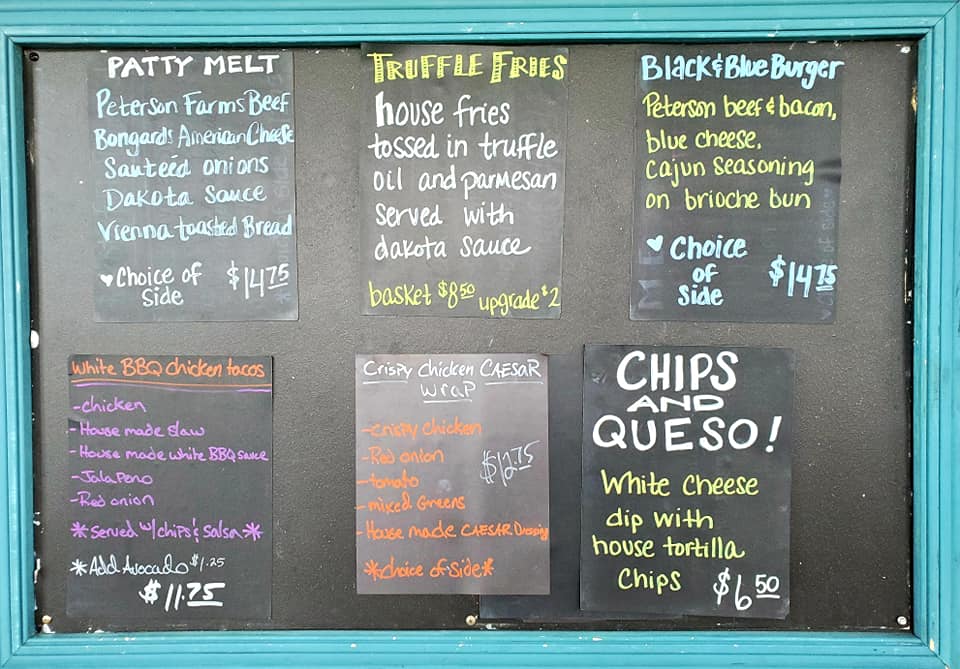 PATTY MELT
Peterson Farms Beef
Bongards American Cheese
Sauteéd onions
Dakota Sauce
Vienna toasted Bread
♥ Choice of
Side
$14.75
TRUFFLE FRIES
house fries
tossed in truffle
oil and parmesan
served with
dakota sauce
basket $8.50 upgrade $2
Black & Blue Burger
Peterson beef & bacon,
blue cheese,
Cajun Seasoning
on brioche bun
♥ Choice
of
side
$14.75
White BBQ chicken tacos
-chicken
-House made slaw
-House made white BBQ sauce
-Jalapeno
-Red onion
*Served w/chips & Salsa*
*Add Avocado $1.25
$11.75
Crispy chicken CAESAR
Wrap
-crispy chicken
-Red onion
-tomato
-mixed Greens
-House made CAESAR Dressing
$12.75
*choice of side*
CHIPS
AND
QUESO!
White cheese
dip with
house tortilla
Chips
$6.50